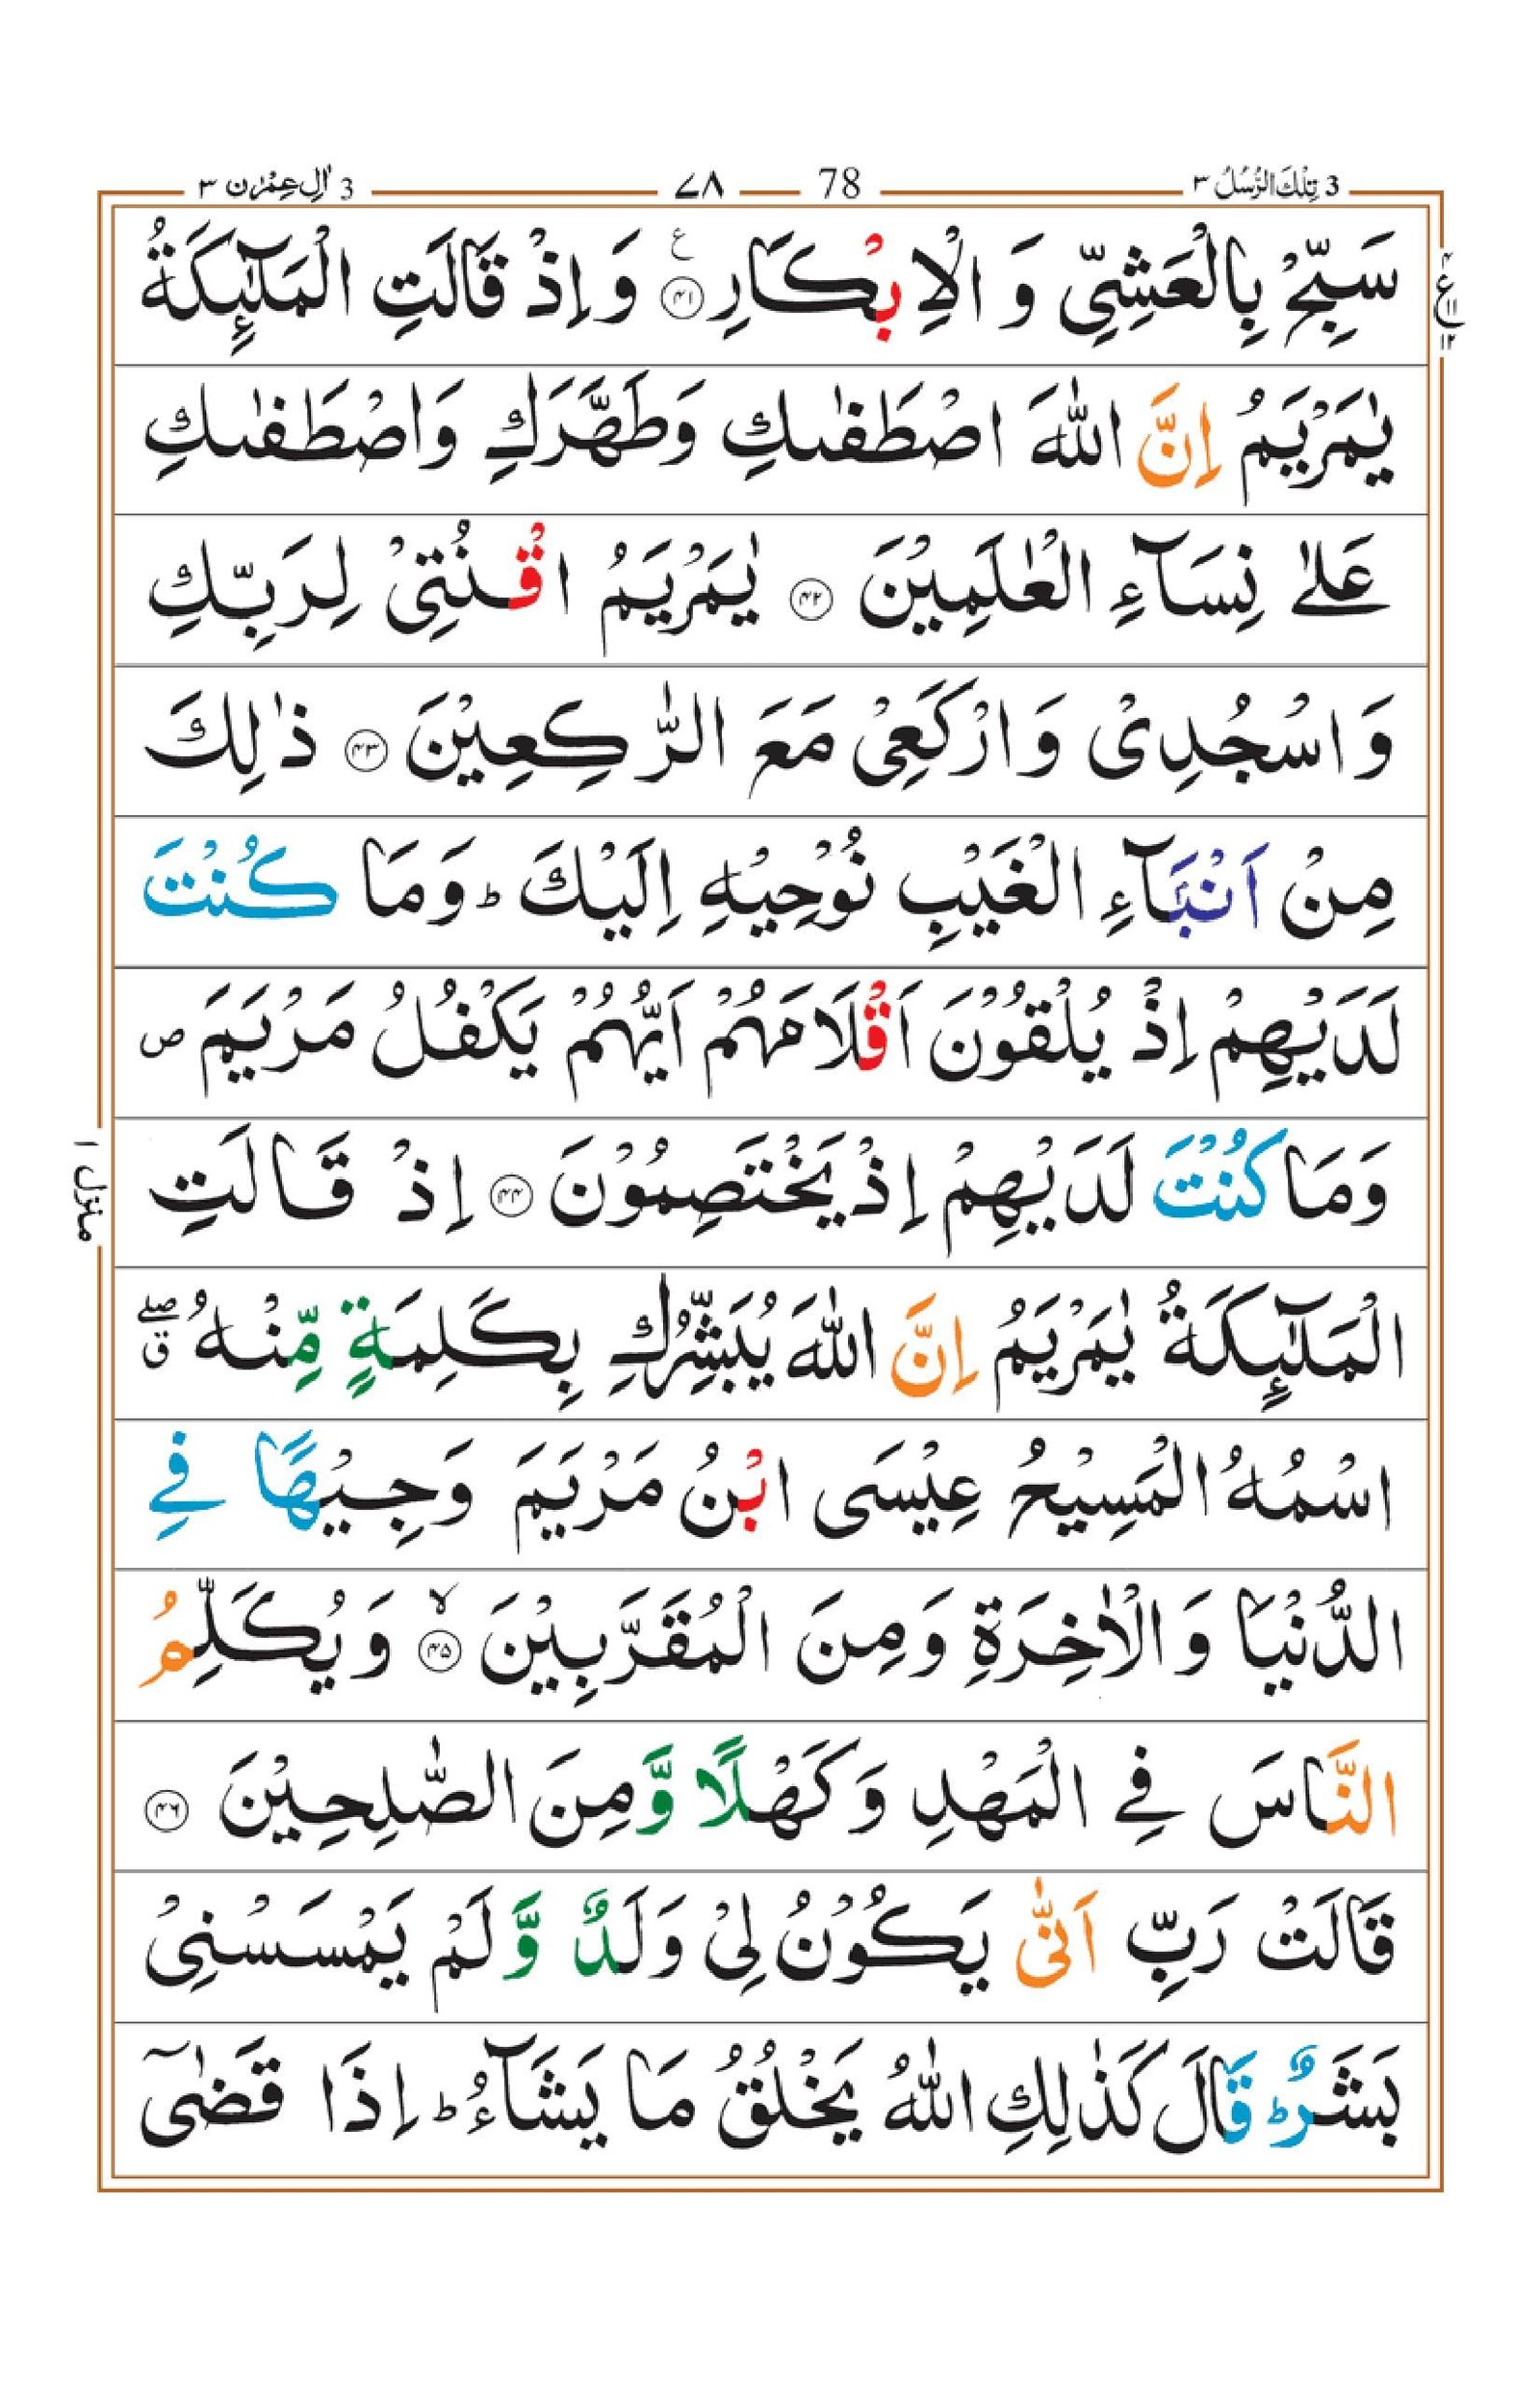 3 تِلْكَ الرُّسُلُ ٣
78 ٧٨
3 اٰلِ عِمْرٰن ٣
سَبِّحْ بِالْعَشِيِّ وَ الْاِبْكَارِ ﴿۴۱﴾ ع وَ اِذْ قَالَتِ الْمَلٰٓئِكَةُ
ع
۴
۱۱
۱۲
يٰمَرْيَمُ اِنَّ اللّٰهَ اصْطَفٰىكِ وَطَهَّرَكِ وَاصْطَفٰىكِ
عَلٰى نِسَآءِ الْعٰلَمِيْنَ ﴿۴۲﴾ يٰمَرْيَمُ اقْنُتِيْ لِرَبِّكِ
وَ اسْجُدِيْ وَ ارْكَعِيْ مَعَ الرّٰكِعِيْنَ ﴿۴۳﴾ ذٰلِكَ
مِنْ اَنْۢبَآءِ الْغَيْبِ نُوْحِيْهِ اِلَيْكَ ؕ وَمَا كُنْتَ
لَدَيْهِمْ اِذْ يُلْقُوْنَ اَقْلَامَهُمْ اَيُّهُمْ يَكْفُلُ مَرْيَمَ ص
وَمَا كُنْتَ لَدَيْهِمْ اِذْ يَخْتَصِمُوْنَ ﴿۴۴﴾ اِذْ قَالَتِ
منزل ١
الْمَلٰٓئِكَةُ يٰمَرْيَمُ اِنَّ اللّٰهَ يُبَشِّرُكِ بِكَلِمَةٍ مِّنْهُ ۖق
اسْمُهُ الْمَسِيْحُ عِيْسَى ابْنُ مَرْيَمَ وَجِيْهًا فِي
الدُّنْيَا وَ الْاٰخِرَةِ وَمِنَ الْمُقَرَّبِيْنَ ﴿۴۵﴾ ۙ وَ يُكَلِّمُ
النَّاسَ فِي الْمَهْدِ وَ كَهْلًا وَّ مِنَ الصّٰلِحِيْنَ ﴿۴۶﴾
قَالَتْ رَبِّ اَنّٰى يَكُوْنُ لِيْ وَلَدٌ وَّ لَمْ يَمْسَسْنِيْ
بَشَرٌ ؕ قَالَ كَذٰلِكِ اللّٰهُ يَخْلُقُ مَا يَشَآءُ ؕ اِذَا قَضٰۤى